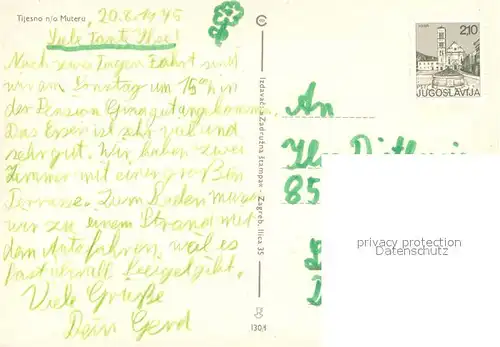 Tijesno n/o Muteru, 20.8.1975
Liebe Tante Ilse!
Nach zwei Tagen Fahrt sind
wir am Samstag um 15 00 h in
der Pension Grna gut angekommen.
Das Essen ist sehr viel und
sehr gut. Wir haben zwei
Zimmer mit einer großen
Terrasse. Zum Baden müssen
wir zu einem Strand mit
dem Auto fahren, weil es
fast überall Seeigel gibt.
Viele Grüße
Dein Gerd
Izdavač: Zadružna štampa - Zagreb, Ilica 35
1301
2,10
PTT
JUGOSLAVIJA
An
85
privacy protection
Datenschutz